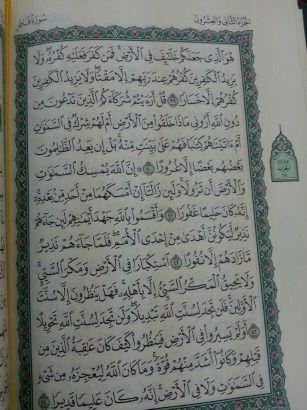 الجزء الثاني والعشرون سورة فاطر
هُوَ ٱلَّذِى جَعَلَكُمْ خَلَٰٓئِفَ فِى ٱلْأَرْضِ فَمَن كَفَرَ فَعَلَيْهِ كُفْرُهُۥ وَلَا
يَزِيدُ ٱلْكَٰفِرِينَ كُفْرُهُمْ عِندَ رَبِّهِمْ إِلَّا مَقْتًا وَلَا يَزِيدُ ٱلْكَٰفِرِينَ
كُفْرُهُمْ إِلَّا خَسَارًا ٣٩ قُلْ أَرَءَيْتُمْ شُرَكَآءَكُمُ ٱلَّذِينَ تَدْعُونَ مِن
دُونِ ٱللَّهِ أَرُونِى مَاذَا خَلَقُوا۟ مِنَ ٱلْأَرْضِ أَمْ لَهُمْ شِرْكٌ فِى ٱلسَّمَٰوَٰتِ
أَمْ ءَاتَيْنَٰهُمْ كِتَٰبًا فَهُمْ عَلَىٰ بَيِّنَتٍ مِّنْهُ بَلْ إِن يَعِدُ ٱلظَّٰلِمُونَ
بَعْضُهُم بَعْضًا إِلَّا غُرُورًا ٤٠ إِنَّ ٱللَّهَ يُمْسِكُ ٱلسَّمَٰوَٰتِ
وَٱلْأَرْضَ أَن تَزُولَا وَلَئِن زَالَتَآ إِنْ أَمْسَكَهُمَا مِنْ أَحَدٍ مِّنۢ بَعْدِهِۦٓ
إِنَّهُۥ كَانَ حَلِيمًا غَفُورًا ٤١ وَأَقْسَمُوا۟ بِٱللَّهِ جَهْدَ أَيْمَٰنِهِمْ لَئِن جَآءَهُمْ
نَذِيرٌ لَّيَكُونُنَّ أَهْدَىٰ مِنْ إِحْدَى ٱلْأُمَمِ فَلَمَّا جَآءَهُمْ نَذِيرٌ
مَّا زَادَهُمْ إِلَّا نُفُورًا ٤٢ ٱسْتِكْبَارًا فِى ٱلْأَرْضِ وَمَكْرَ ٱلسَّيِّئِ
وَلَا يَحِيقُ ٱلْمَكْرُ ٱلسَّيِّئُ إِلَّا بِأَهْلِهِۦ فَهَلْ يَنظُرُونَ إِلَّا سُنَّتَ
ٱلْأَوَّلِينَ فَلَن تَجِدَ لِسُنَّتِ ٱللَّهِ تَبْدِيلًا وَلَن تَجِدَ لِسُنَّتِ ٱللَّهِ تَحْوِيلًا
٤٣ أَوَلَمْ يَسِيرُوا۟ فِى ٱلْأَرْضِ فَيَنظُرُوا۟ كَيْفَ كَانَ عَٰقِبَةُ ٱلَّذِينَ مِن
قَبْلِهِمْ وَكَانُوٓا۟ أَشَدَّ مِنْهُمْ قُوَّةً وَمَا كَانَ ٱللَّهُ لِيُعْجِزَهُۥ مِن شَىْءٍ
فِى ٱلسَّمَٰوَٰتِ وَلَا فِى ٱلْأَرْضِ إِنَّهُۥ كَانَ عَلِيمًا قَدِيرًا ٤٤